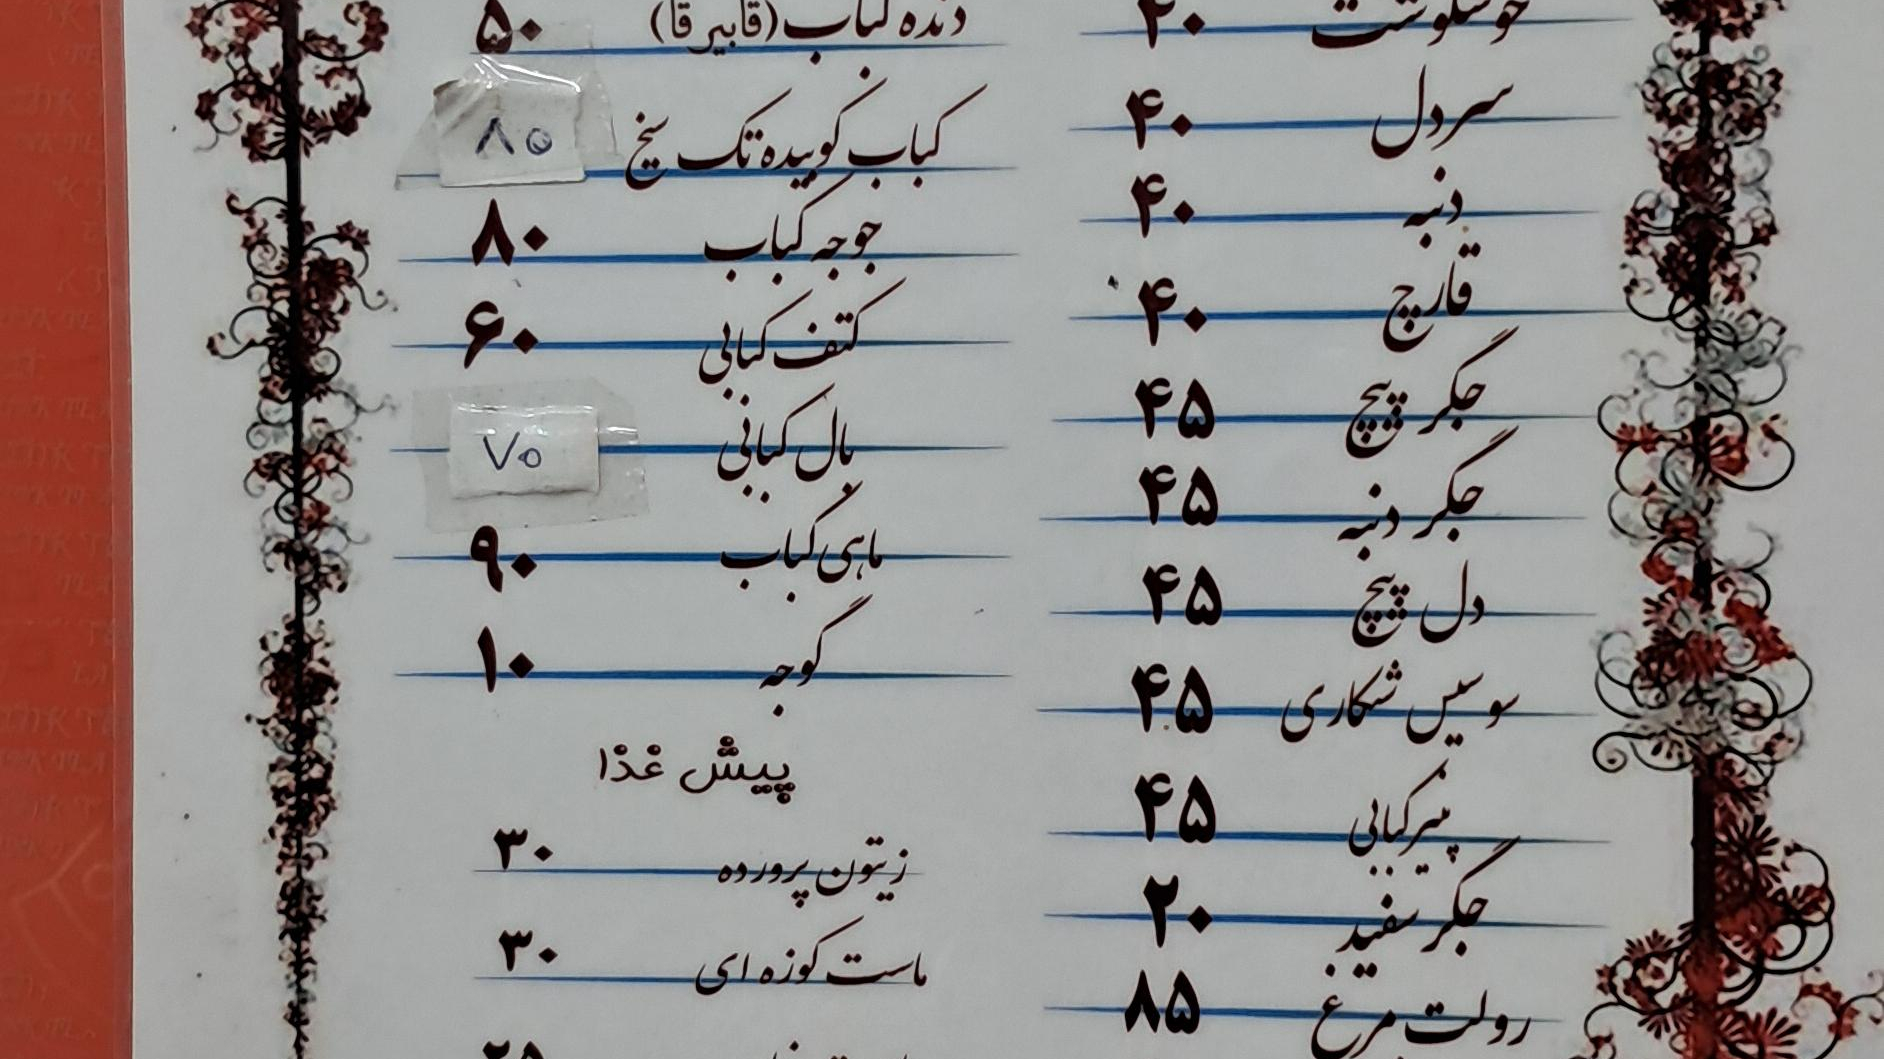 خوشگوشت ۴۰
سردل ۴۰
دنبه ۴۰
قارچ ۴۰
جگر پیچ ۴۵
جگر دنبه ۴۵
دل پیچ ۴۵
سوسیس شکاری ۴۵
پنیر کبابی ۴۵
جگر سفید ۲۰
رولت مرغ ۸۵
دنده کباب (قابیرقا) ۵۰
کباب کوبیده تک سیخ ۸۰
جوجه کباب ۸۰
کتف کبابی ۶۰
بال کبابی ۷۰
ماهی کباب ۹۰
گوجه ۱۰
پیش غذا
زیتون پرورده ۳۰
ماست کوزه ای ۳۰